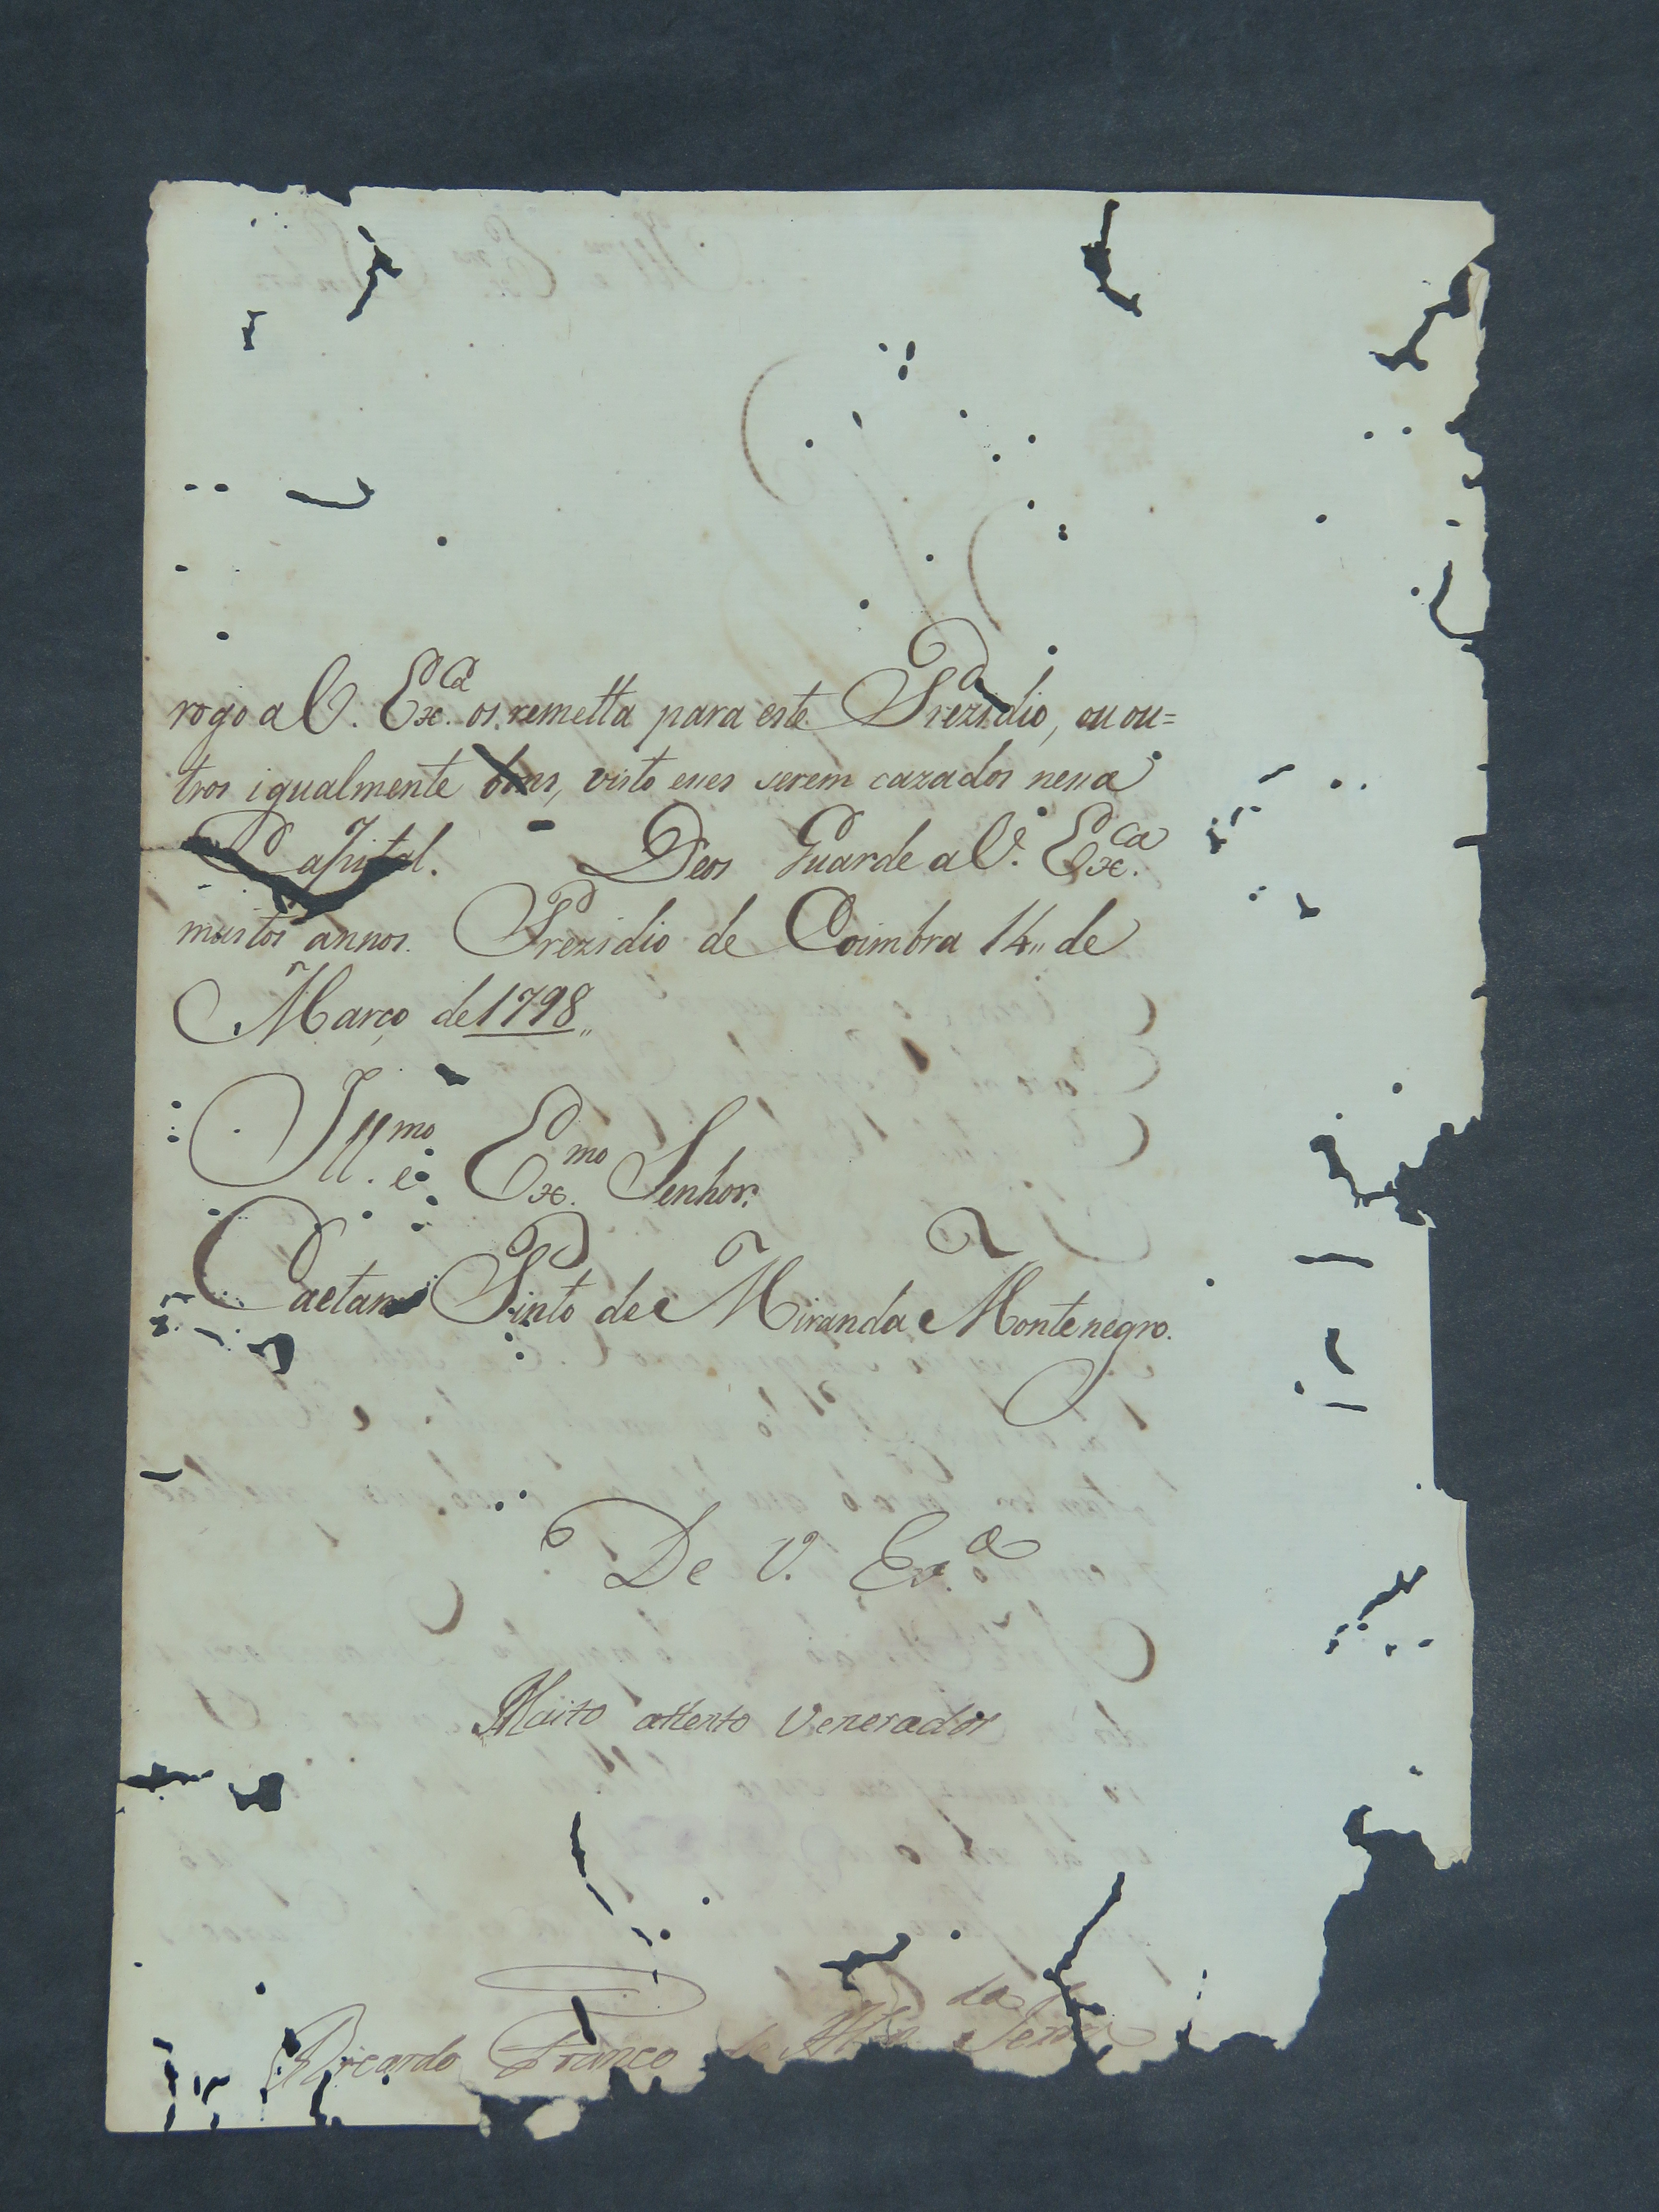 rogo a V. Ex.ca os remetta para este Prezidio, ou ou=
tros igualmente bons, visto esses serem cazados nessa
Capital. Deos Guarde a V. Ex.ca
muitos annos. Prezidio de Coimbra 14,, de
Março de 1798,,
Ill.mo e Ex.mo Senhor.
Caetano Pinto de Miranda Montenegro.
De V. Ex.a
Muito attento Venerador
Ricardo Franco de Alm.da Serra